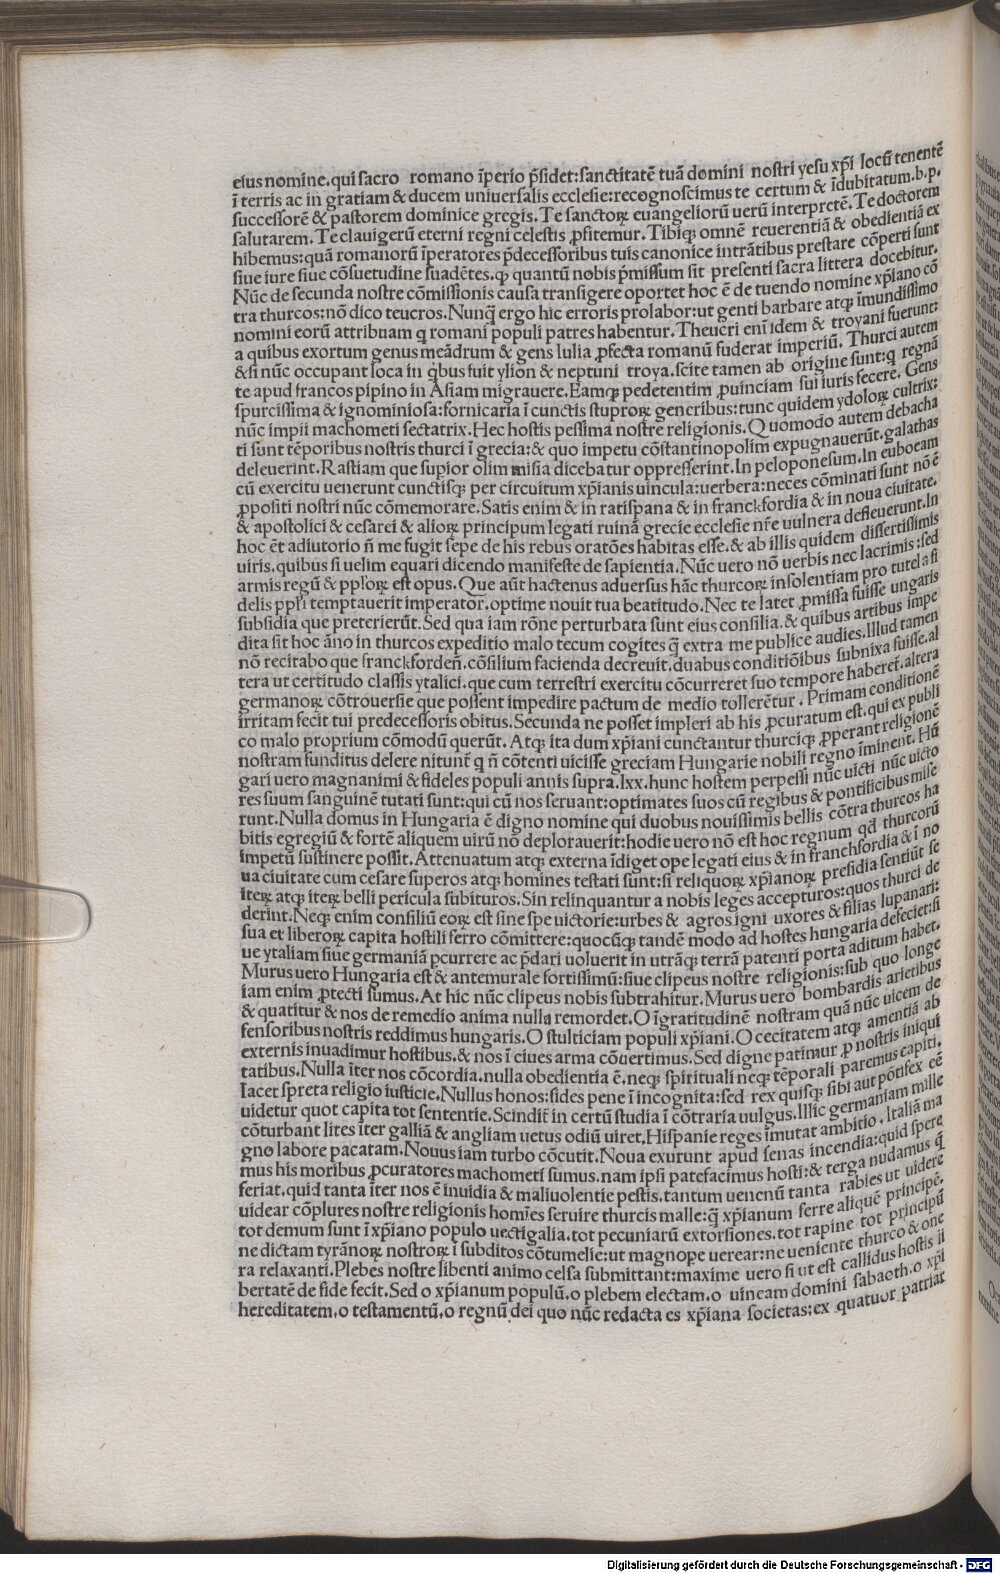 eius nomine.qui sacro romano īperio p̄sidet:sanctitatē tuā domini nostri yesu xp̄i locū tenentē
ī terris ac in gratiam & ducem universalis ecclesie:recognoscimus te certum & īdubitatum.b.p.
successorē & pastorem dominice gregis.Te sanctoꝝ euangeliorū uerū interpretē.Te doctorem
salutarem.Te clauigerū eterni regni celestis ꝓfitemur.Tibiqꝫ omnē reuerentiā & obedientiā ex
hibemus:quā romanorū īperatores p̄decessoribus tuis canonice intrātibus prestare cōperti sunt
siue iure siue cōsuetudine suadētes.qꝫ quantū nobis p̄missum sit presenti sacra littera docebitur.
Nūc de secunda nostre cōmissionis causa transigere oportet hoc ē de tuendo nomine xp̄iano cō
tra thurcos:nō dico teucros.Nunq̄ ergo hic erroris prolabor:ut genti barbare atqꝫ īmundissimo
nomini eorū attribuam q romani populi patres habentur.Theucri enī idem & troyani fuerunt:
a quibus exortum genus meādrum & gens Iulia ꝓfecta romanū fuderat imperiū.Thurci autem
& si nūc occupant loca in q̄bus fuit ylion & neptuni troya.scite tamen ab origine sunt:q regnā
te apud francos pipino in Asiam migrauere.Eamqꝫ pedetentim ꝓuinciam sui iuris fecere.Gens
spurcissima & ignominiosa:fornicaria ī cunctis stuproꝝ generibus:tunc quidem ydoloꝝ cultrix:
nūc impii machometi sectatrix.Hec hostis pessima nostre religionis.Quomodo autem debacha
ti sunt tēporibus nostris thurci ī grecia:& quo impetu cōstantinopolim expugnauerūt.galathas
deleuerint.Rastiam que supior olim misia dicebatur oppresserint.In peloponesum.In euboeam
cū exercitu uenerunt cunctisqꝫ per circuitum xp̄ianis uincula:uerbera:neces cōminati sunt nō ē
ꝓpositi nostri nūc cōmemorare.Satis enim & in ratispana & in franckfordia & in noua ciuitate.
& apostolici & cesarei & alioꝝ principum legati ruinā grecie ecclesie nr̄e uulnera defleuerunt.In
hoc ēt adiutorio n̄ me fugit sepe de his rebus oratōes habitas esse.& ab illis quidem dissertissimis
uiris.quibus si uelim equari dicendo manifeste desipientia.Nūc uero nō uerbis nec lacrimis:sed
armis regū & pp̄loꝝ est opus.Que aūt hactenus aduersus hāc thurcoꝝ insolentiam pro tutela fi
delis pp̄li temptauerit imperator.optime nouit tua beatitudo.Nec te latet ꝓmissa fuisse ungaris
subsidia que preterierūt.Sed qua iam rōne perturbata sunt eius consilia.& quibus artibus impe
dita sit hoc āno in thurcos expeditio malo tecum cogites q̄ extra me publice audies.Illud tamen
nō recitabo que franckfordeñ.cōsilium facienda decreuit.duabus conditiōibus subnixa fuisse.al
tera ut certitudo classis ytalici.que cum terrestri exercitu cōcurreret suo tempore haberet̄.altera
germanoꝝ cōtrouersie que possent impedire pactum de medio tollerētur.Primam conditionē
irritam fecit tui predecessoris obitus.Secunda ne posset impleri ab his ꝓcuratum est.qui ex publi
co malo proprium cōmodū querūt.Atqꝫ ita dum xp̄iani cunctantur thurciqꝫ ꝓperant religionē
nostram funditus delere nitunt̄ q n̄ cōtenti uicisse greciam Hungarie nobili regno īminent.Hū
gari uero magnanimi & fideles populi annis supra.lxx.hunc hostem perpessi nūc uicti nūc uicto
res suum sanguinē tutati sunt:qui cū nos seruant:optimates suos cū regibus & pontificibus mise
runt.Nulla domus in Hungaria ē digno nomine qui duobus nouissimis bellis cōtra thurcos ha
bitis egregiū & fortē aliquem uirū nō deplorauerit:hodie uero nō est hoc regnum qd thurcorū
īmpetū sustinere possit.Attenuatum atqꝫ externa īdiget ope legati eius & in franchfordia & ī no
ua ciuitate cum cesare superos atqꝫ homines testati sunt:si reliquoꝝ xp̄ianoꝝ presidia sentiūt se
īteꝝ atqꝫ īteꝝ belli pericula subituros.Sin relinquantur a nobis leges accepturos:quos thurci de
derint.Neqꝫ enim consiliū eoꝝ est sine spe uictorie:urbes & agros igni uxores & filias lupanari:
sua et liberoꝝ capita hostili ferro cōmittere:quocūqꝫ tandē modo ad hostes hungaria defeciet:si
ue ytaliam siue germaniā ꝑcurrere ac p̄dari uoluerit in utrāqꝫ terrā patenti porta aditum habet.
Murus uero Hungaria est & antemurale fortissimū:siue clipeus nostre religionis:sub quo longe
iam enim ꝓtecti sumus.At hic nūc clipeus nobis subtrahitur.Murus uero bombardis arietibus
& quatitur & nos de remedio anima nulla remordet.O īgratitudinē nostram quā nūc uicem de
fensoribus nostris reddimus hungaris.O stulticiam populi xp̄iani.O cecitatem atqꝫ amentiā ab
externis inuadimur hostibus.& nos ī ciues arma cōuertimus.Sed digne patimur ꝓ nostris iniqui
tatibus.Nulla īter nos cōcordia.nulla obedientia ē.neqꝫ spirituali neqꝫ tēporali paremus capiti.
Iacet spreta religio iusticie.Nullus honos:fides pene ī incognita:sed rex quisqꝫ sibi aut pōtifex eē
uidetur quot capita tot sententie.Scindit̄ in certū studia ī cōtraria uulgus.Illic germaniam mille
cōturbant lites īter galliā & angliam uetus odiū uiret.Hispanie reges īmutat ambitio.Italiā ma
gno labore pacatam.Nouus iam turbo cōcutit.Noua exurunt apud senas incendia:quid spere
mus his moribus ꝓcuratores machometi sumus.nam ipsi patefacimus hosti:& terga nudamus q̄
feriat.quid tanta īter nos ē inuidia & maliuolentie pestis.tantum uenenū tanta rabies ut uidere
uidear cōplures nostre religionis homīes seruire thurcis malle:q̄ xp̄ianum ferre aliquē principē.
tot demum sunt ī xp̄iano populo uectigalia.tot pecuniarū extorsiones.tot rapine tot principū
ne dictam tyrānoꝝ nostroꝝ ī subditos cōtumelie:ut magnope uerear:ne ueniente thurco & one
ra relaxanti.Plebes nostre libenti animo celsa submittant:maxime uero si ut est callidus hostis li
bertatē de fide fecit.Sed o xp̄ianum populū.o plebem electam.o uineam domini sabaoth.o xp̄i
hereditatem.o testamentū.o regnū dei quo nūc redacta es xp̄iana societas:ex quatuor patriar
Digitalisierung gefördert durch die Deutsche Forschungsgemeinschaft - DFG